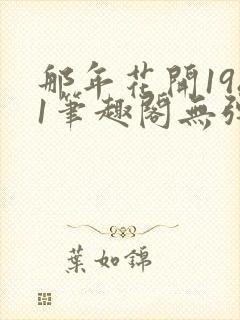 那年花開19
1筆趣閣無
葉如錦